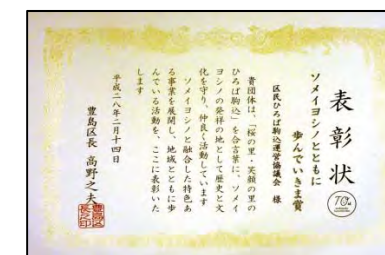 表彰状
70th
ソメイヨシノとともに
歩んでいきま賞
区民ひろば駒込運営協議会 様
貴団体は、「桜の里・笑顔の里の
ひろば駒込」を合言葉に、ソメイ
ヨシノの発祥の地として歴史と文
化を守り、仲良く活動しています
ソメイヨシノと融合した特色あ
る事業を展開し、地域とともに歩
んでいる活動を、ここに表彰いた
します
平成二八年二月十四日
豊島区長 高野之夫
豊島区
長之印